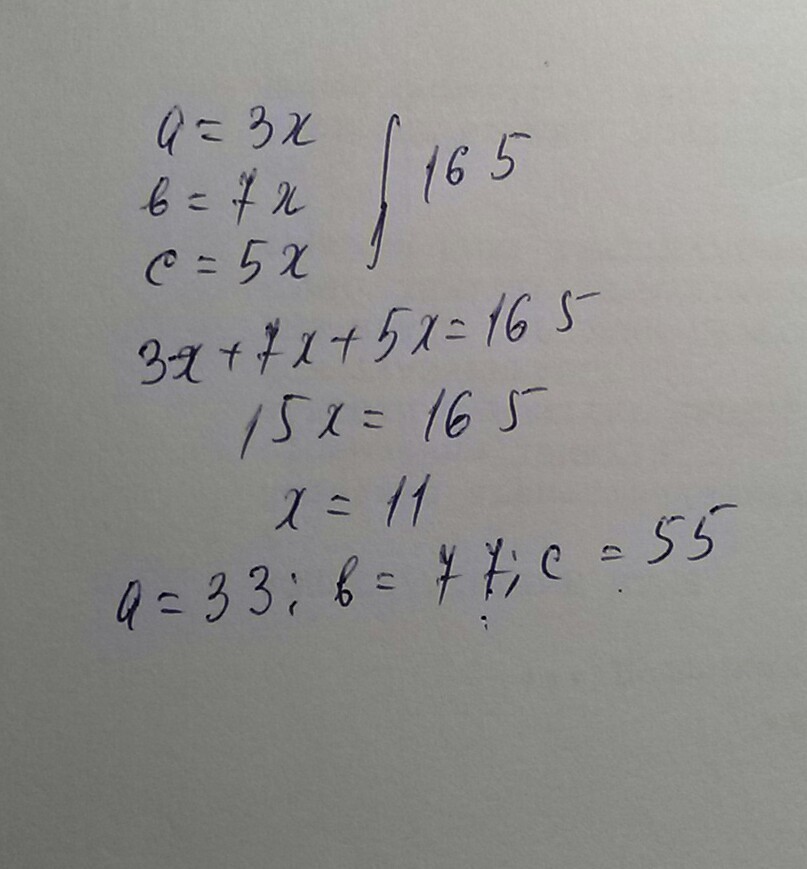 a = 3x
b = 7x
c = 5x
165
3x + 7x + 5x = 165
15x = 165
x = 11
a = 33; b = 77; c = 55